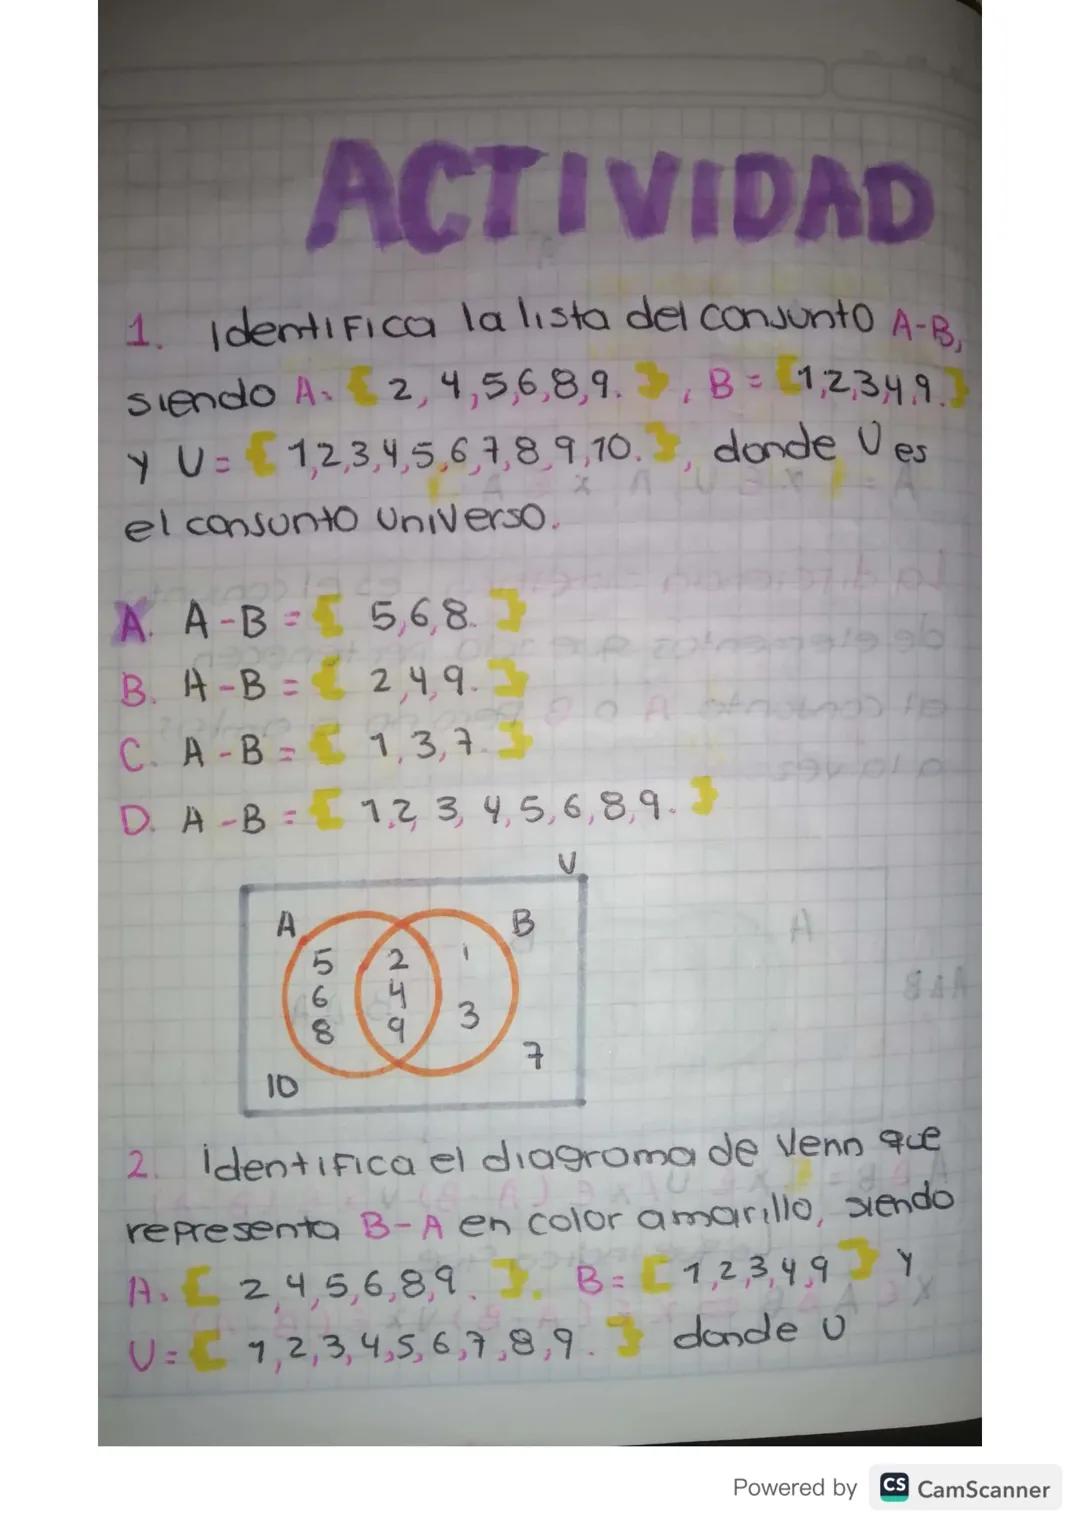 ACTIVIDAD
1. Identifica la lista del conjunto A-B,
siendo A= { 2, 4,5,6,8,9. } , B = {1,2,3,4,9.}
y U= { 1,2,3,4,5,6,7,8,9,10. }, donde U es
el consunto Universo.
A. A-B = { 5,6,8. }
B. A-B = { 2,4,9. }
C. A-B = { 1,3,7. }
D. A-B = { 1,2, 3, 4,5,6,8,9. }
U
A B
5 2 1
6 4
8 9 3
7
10
2. identifica el diagrama de Venn que
representa B-A en color amarillo, siendo
A= { 2,4,5,6,8,9. }. B= { 1,2,3,4,9 } y
U= { 1,2,3,4,5,6,7,8,9. } donde U
Powered by CS CamScanner